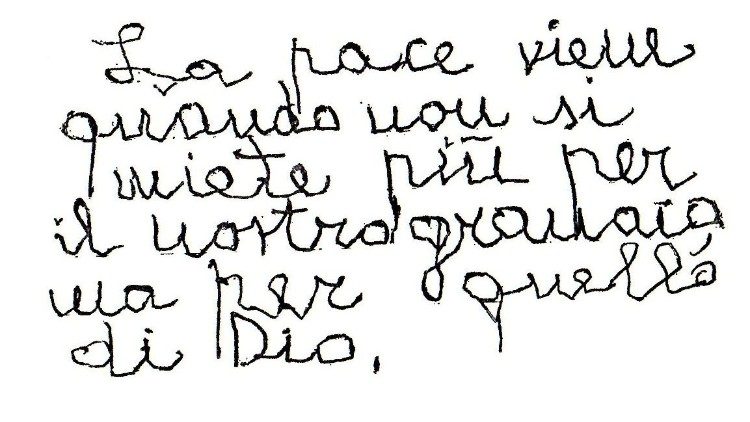 La pace viene
quando non si
miete più per
il nostro granaio
ma per quello
di Dio.